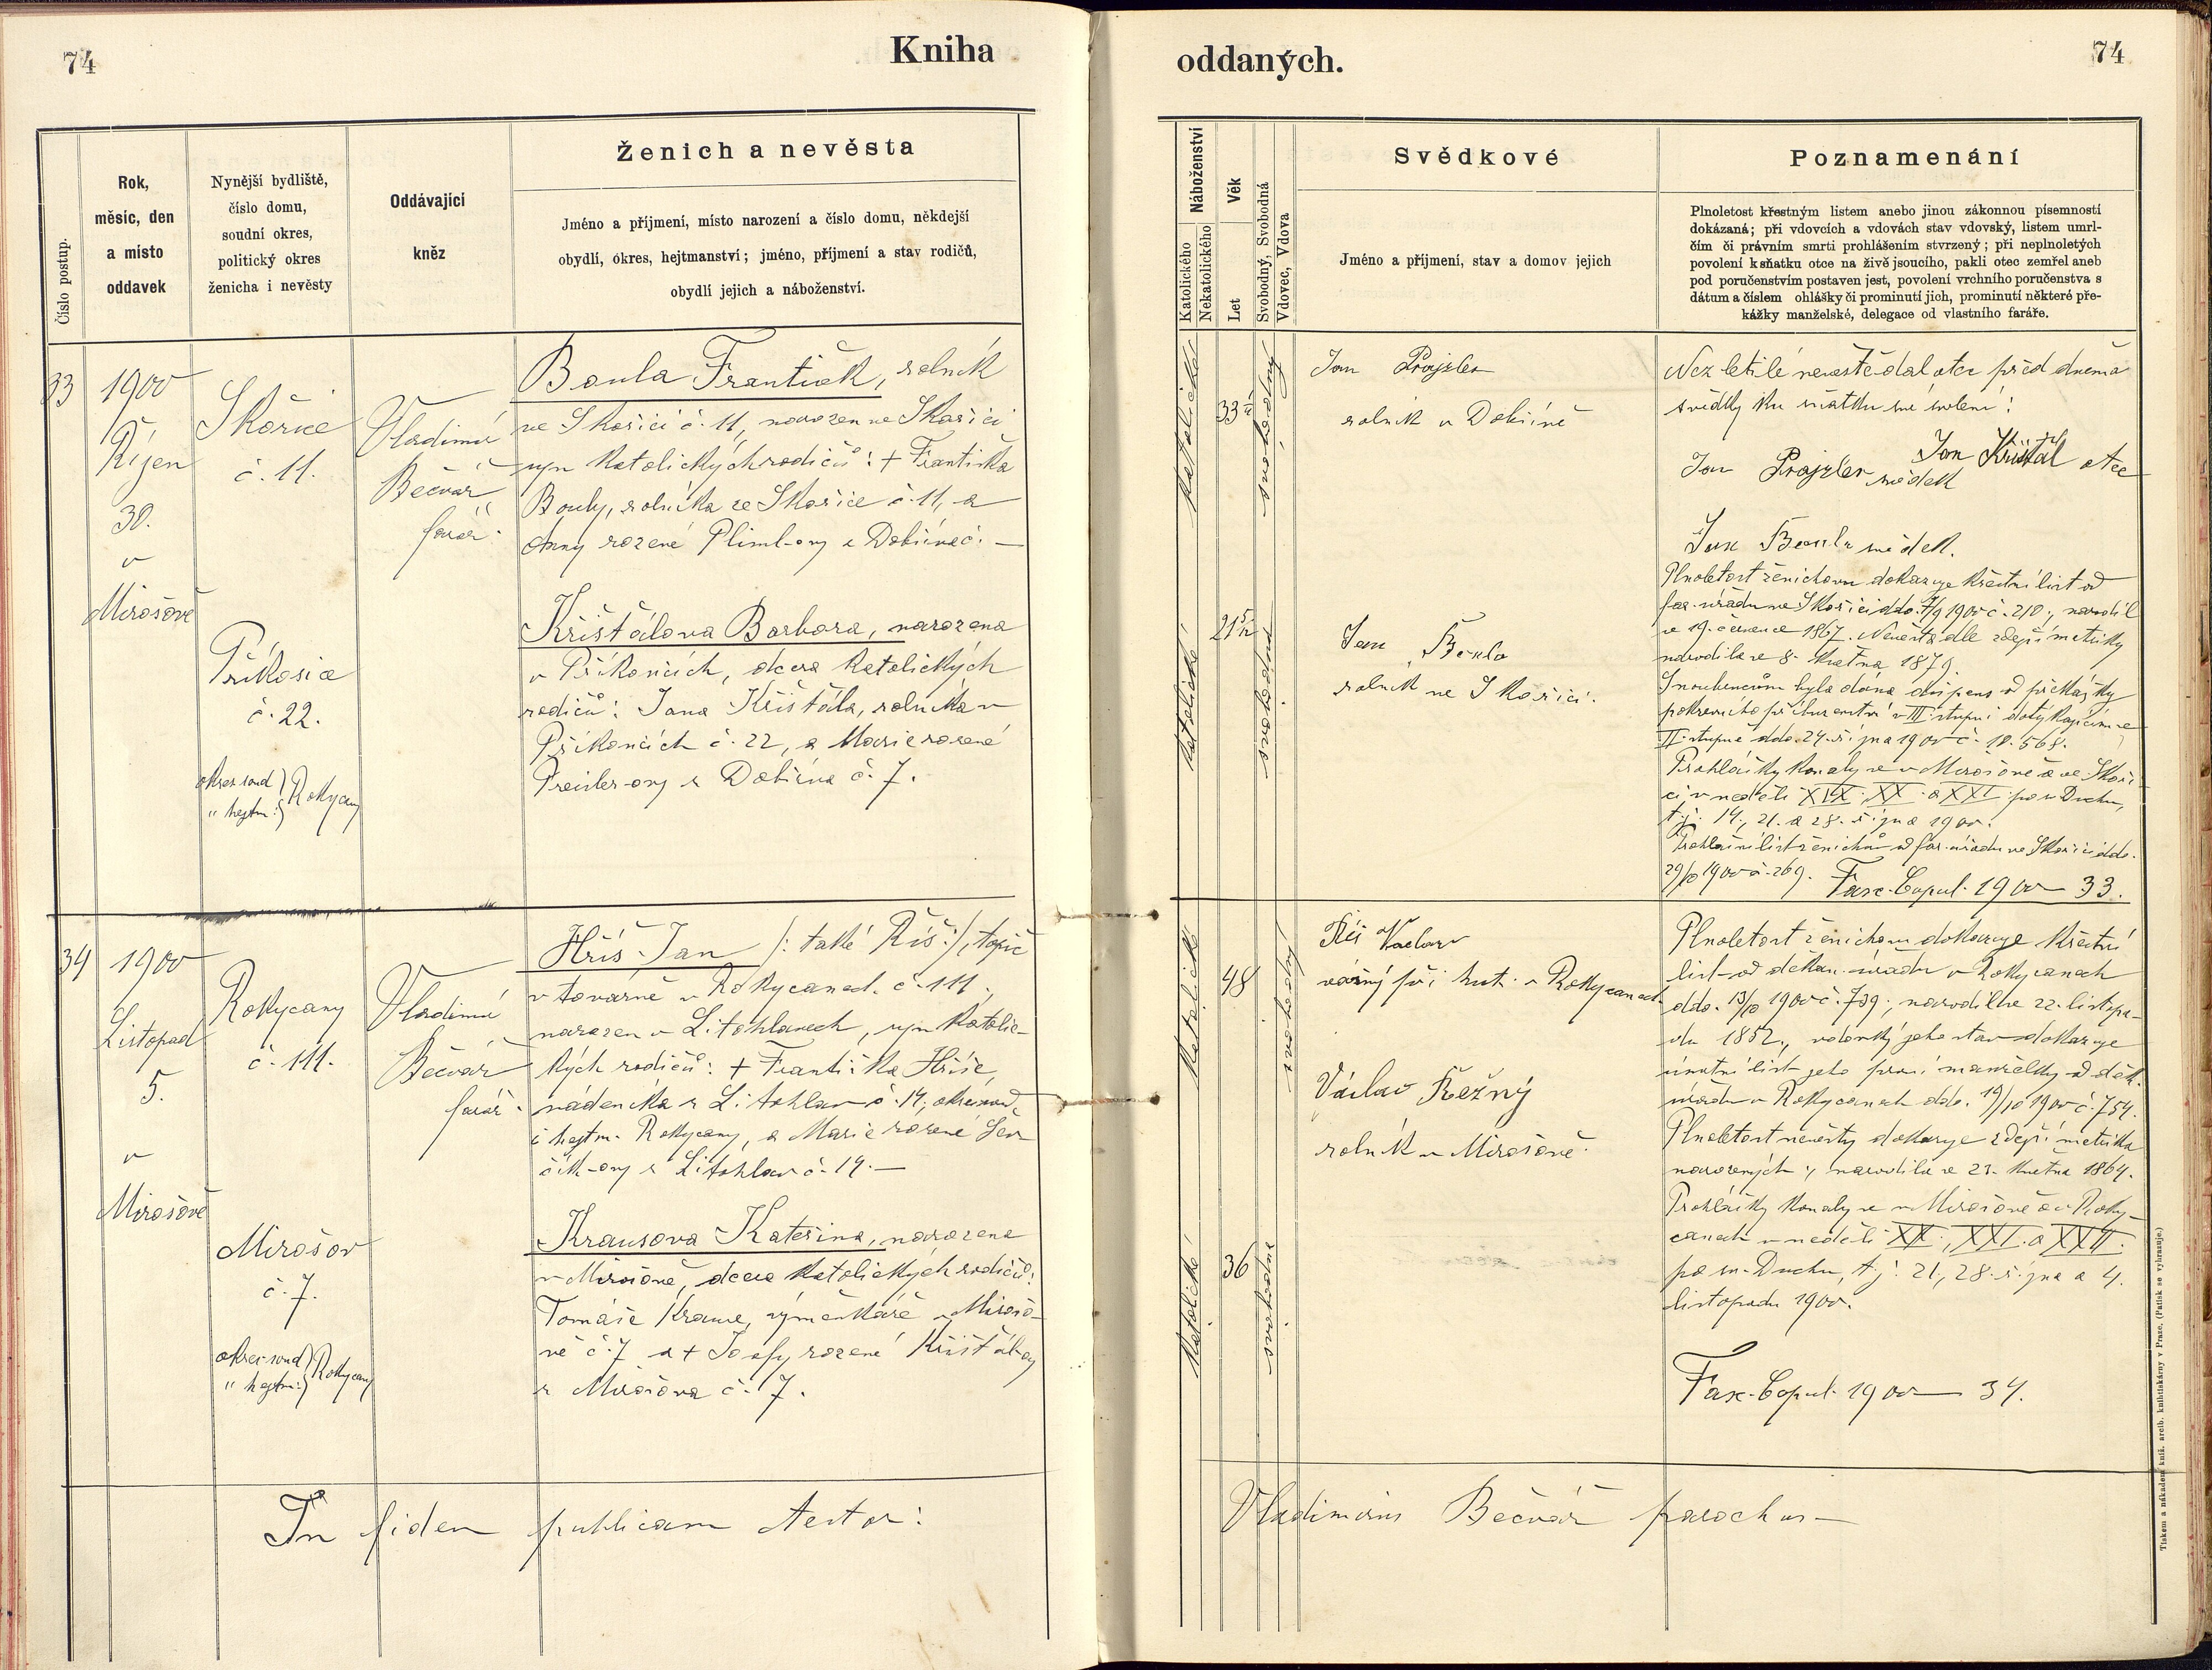 74
Kniha
oddaných.
74
Číslo postup.
Rok,
měsíc, den
a místo
oddavek
Nynější bydliště,
číslo domu,
soudní okres,
politický okres
ženicha i nevěsty
Oddávající
kněz
Ženich a nevěsta
Jméno a příjmení, místo narození a číslo domu, někdejší
obydlí, okres, hejtmanství; jméno, příjmení a stav rodičů,
obydlí jejich a náboženství.
Náboženství
Katolického
Nekatolického
Věk
Let
Svobodný, Svobodná
Vdovec, Vdova
Svědkové
Jméno a příjmení, stav a domov jejich
Poznamenání
Plnoletost křestným listem anebo jinou zákonnou písemností
dokázaná; při vdovcích a vdovách stav vdovský, listem umrl-
čím či právním smrti prohlášením stvrzený; při neplnoletých
povolení k sňatku otce na živě jsoucího, pakli otec zemřel aneb
pod poručenstvím postaven jest, povolení vrchního poručenstva s
dátum a číslem ohlášky či prominutí jich, prominutí některé pře-
kážky manželské, delegace od vlastního faráře.
33
1900
Říjen
30.
v
Mirošově
Skořice
č. 11.
Příkosice
č. 22.
okres soud
" hejtm:
Rokycany
Vladimír
Bečvář
farář.
Boula František, rolník
ve Skořici č. 11, narozen ve Skořici
syn katolických rodičů: + Františka
Bouly, rolníka ze Skořice č. 11, a
Anny rozené
Křišťálova Barbora, narozena
v Příkosicích, dcera katolických
rodičů: Jana Křišťála, rolníka v
Příkosicích č. 22, a Marie rozené
z Dobříva č. 7.
katolické
33
svobodný
katolické
21
svobodná
Jan Prajzler
rolník v Dobřívě
Jan Boula
rolník ve Skořici.
Nezletilé nevěstě dal otec před dvěma
svědky ku sňatku své svolení:
Jan Křišťál otec
Jan Prajzler svědek
Jan Boula svědek.
Plnoletost ženichovu dokazuje křestní list od
far. úřadu ve Skořici ddo. 7/9 1900 č. 210., narodil
se 19. července 1867. Nevěsta dle zdejší matriky
narodila se 8. května 1879.
Snoubencům byla dána dispens od překážky
pokrevního příbuzenství v III. stupni dotýkajícím se
II. stupně ddo. 24. října 1900 č. 10.568.
Prohlášky konaly se v Mirošově a ve Skoři-
ci v neděli XIX., XX. a XXI. po sv. Duchu,
t.j. 14., 21. a 28. října 1900.
Prohlašní list ženichův od far. úřadu ve Skořici ddo.
29/10 1900 č. 269. Fasc. Copul. 1900 — 33.
34
1900
Listopad
5.
v
Mirošově
Rokycany
č. 111.
Mirošov
č. 7.
okres soud
" hejtm:
Rokycany
Vladimír
Bečvář
farář.
Hříš Jan /: také Říš :/, topič
v továrně v Rokycanech č. 111,
narozen v Litohlavech, syn katolic-
kých rodičů: + Františka Hříše,
nádeníka z Litohlav č. 14, okres soud.
i hejtm. Rokycany, a Marie rozené
z Litohlav č. 14. —
Krausova Kateřina, narozena
v Mirošově, dcera katolických rodičů:
Tomáše Krause, výměnkáře v Mirošo-
vě č. 7 a + Josefy rozené Křišťálovy
z Mirošova č. 7.
katolické
48
katolické
36
svobodná
Říš Václav
vážný při huti v Rokycanech
Václav Řežný
rolník v Mirošově.
Plnoletost ženichovu dokazuje křestní
list od děkan. úřadu v Rokycanech
ddo. 13/10 1900 č. 739., narodil se 22. listopa-
du 1852., vdovský jeho stav dokazuje
úmrtní list jeho první manželky od děk.
úřadu v Rokycanech ddo. 19/10 1900 č. 754.
Plnoletost nevěsty dokazuje zdejší matrika
narozených:, narodila se 23. května 1864.
Prohlášky konaly se v Mirošově a v Roky-
canech v neděli XX., XXI. a XXII.
po sv. Duchu, t.j. 21., 28. října a 4.
listopadu 1900.
Fasc. Copul. 1900 — 34.
In fidem publicam testor:
Vladimirus Bečvář parochus —
Tiskem a nákladem kníž. arcib. knihtiskárny v Praze. (Patisk se vyhrazuje.)